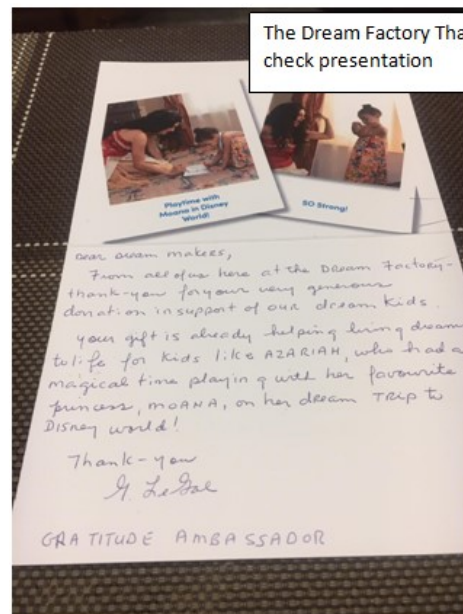 The Dream Factory Tha
check presentation
Playtime with
Moana in Disney
World!
SO Strong!
Dear Dream makers,
From all of us here at the Dream Factory-
thank-you for your very generous
donation in support of our dream kids.
your gift is already helping bring dream
to life for kids like AZARIAH, who had a
magical time playing with her favourite
princess, MOANA, on her dream TRIP to
Disney World!
Thank-you
GRATITUDE AMBASSADOR